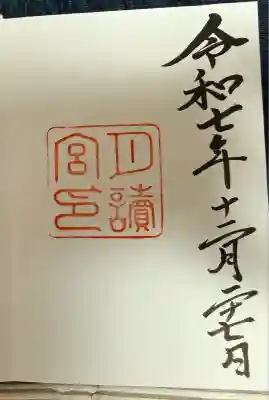 令和七年十二月二十七日
月讀
宮印